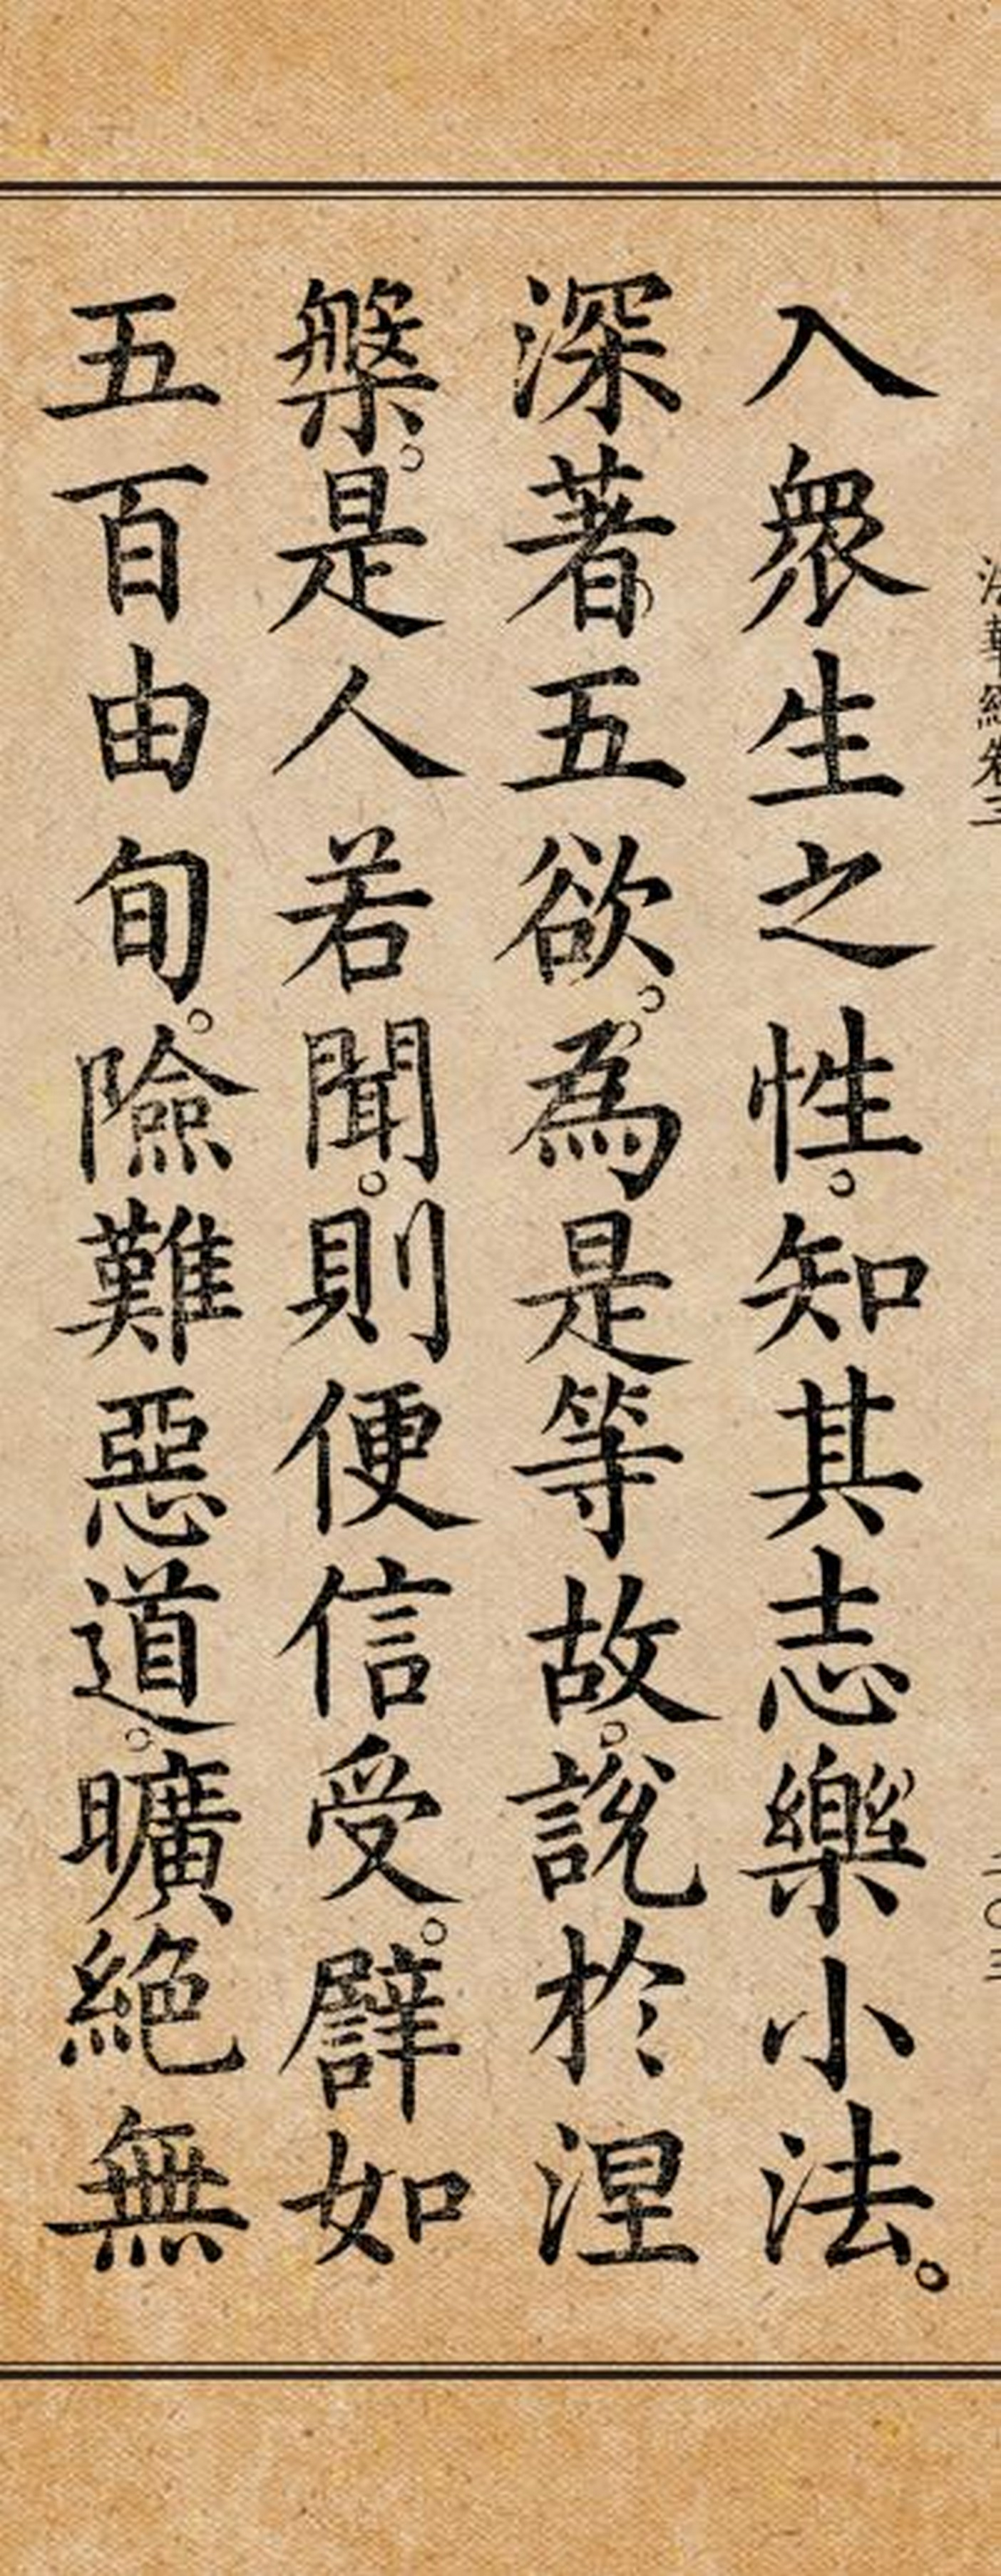 法華經卷三
二〇三
入眾生之性。知其志樂小法。
深著五欲。為是等故。說於涅
槃。是人若聞。則便信受。譬如
五百由旬。險難惡道。曠絕無